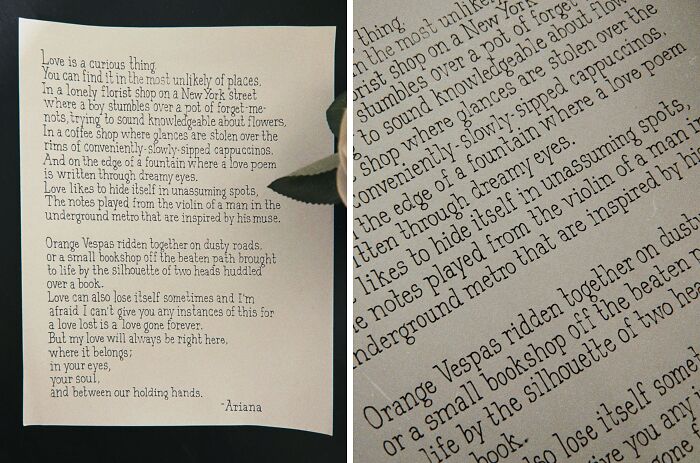 Love is a curious thing.
You can find it in the most unlikely of places.
In a lonely florist shop on a New York street
where a boy stumbles over a pot of forget-me-
nots, trying to sound knowledgeable about flowers,
In a coffee shop where glances are stolen over the
rims of conveniently-slowly-sipped cappuccinos.
And on the edge of a fountain where a love poem
is written through dreamy eyes.
Love likes to hide itself in unassuming spots,
The notes played from the violin of a man in the
underground metro that are inspired by his muse.
Orange Vespas ridden together on dusty roads.
or a small bookshop off the beaten path brought
to life by the silhouette of two heads huddled
over a book.
Love can also lose itself sometimes and I'm
afraid I can't give you any instances of this for
a love lost is a love gone forever.
But my love will always be right here,
where it belongs;
in your eyes,
your soul,
and between our holding hands.
-Ariana
thing.
in the most unlikely
rist shop on a New York
stumbles over a pot of forget
to sound knowledgeable about flow
shop where glances are stolen over the
conveniently-slowly-sipped cappuccinos.
the edge of a fountain where a love poem
itten through dreamy eyes.
likes to hide itself in unassuming spots,
e notes played from the violin of a man in
nderground metro that are inspired by his
Orange Vespas ridden together on dusty
or a small bookshop off the beaten p
life by the silhouette of two hea
book.
so lose itself somet
ive you any i
gone f